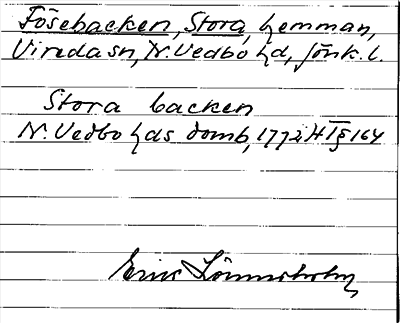 Fösebacken, Stora, hemman,
Viredasn, N. Vedbo hd, Jönk. l.
Stora backen
N. Vedbo hds domb, 1772 H T § 164
Eric Lönnerholm